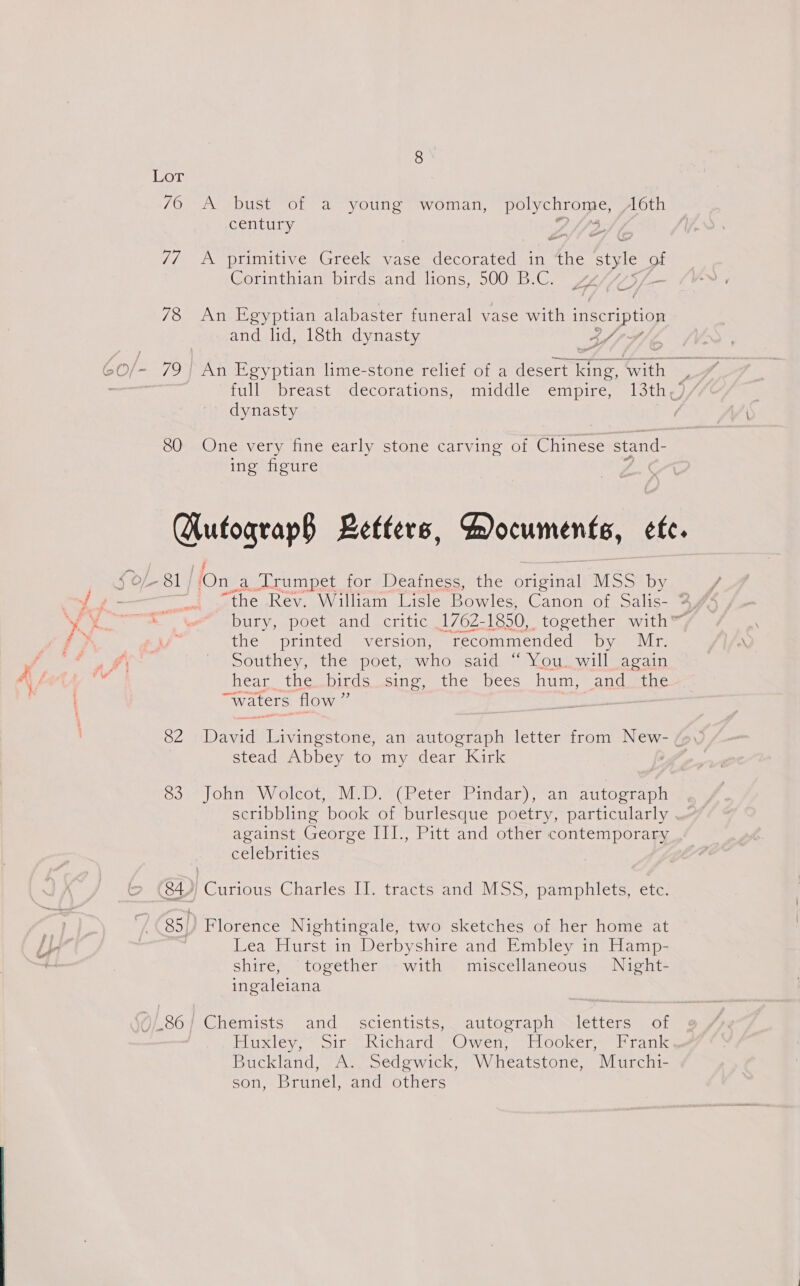 8
Lot
76 A bust of a young woman, polychrome, 16th
century
77 A primitive Greek vase decorated in the style of
Corinthian birds and lions, 500 B.C.
78 An Egyptian alabaster funeral vase with inscription
and lid, 18th dynasty
60/- 79 An Egyptian lime-stone relief of a desert king, with
full breast decorations, middle empire, 13th
dynasty
80 One very fine early stone carving of Chinese stand-
ing figure
Autograph Letters, Documents, etc.
50/- 81 On a Trumpet for Deafness, the original MSS by
the Rev. William Lisle Bowles, Canon of Salis-
bury, poet and critic 1762-1850, together with
the printed version, recommended by Mr.
Southey, the poet, who said “ You will again
hear the birds sing, the bees hum, and the
waters flow ”
82 David Livingstone, an autograph letter from New-
stead Abbey to my dear Kirk
83 John Wolcot, M.D. (Peter Pindar), an autograph
scribbling book of burlesque poetry, particularly
against George III., Pitt and other contemporary
celebrities
84 Curious Charles II. tracts and MSS, pamphlets, etc.
85 Florence Nightingale, two sketches of her home at
Lea Hurst in Derbyshire and Embley in Hamp-
shire, together with miscellaneous Night-
ingaleiana
86 Chemists and scientists, autograph letters of
Huxley, Sir Richard Owen, Hooker, Frank
Buckland, A. Sedgwick, Wheatstone, Murchi-
son, Brunel, and others